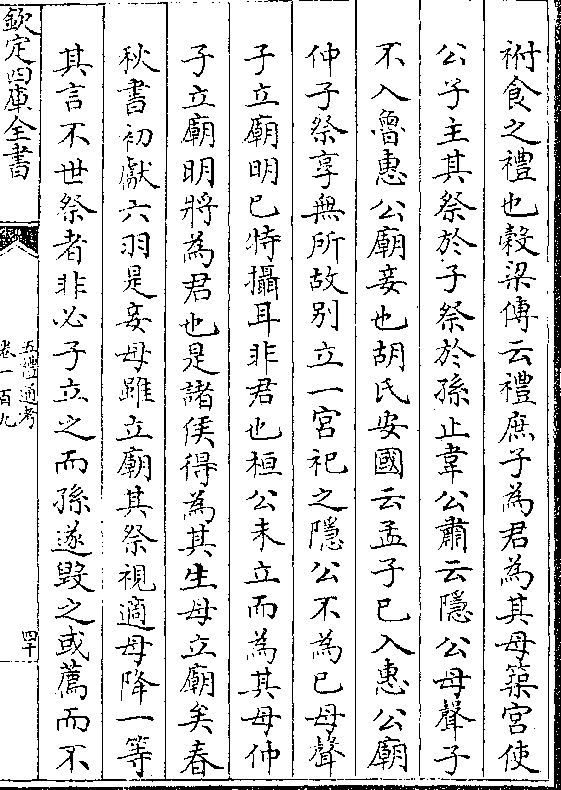 祔食之禮也穀梁傳云禮庶子為君為其母築宮使
公子主其祭於子祭於孫止韋公肅云隱公母聲子
不入魯惠公廟妾也胡氏安國云孟子已入惠公廟
仲子祭享無所故别立一宮祀之隱公不為已母聲
子立廟明已特攝耳非君也桓公未立而為其母仲
子立廟明將為君也是諸侯得為其生母立廟矣春
秋書初獻六羽是妾母雖立廟其祭視適母降一等
其言不世祭者非必子立之而孫遂毁之或薦而不
欽定四庫全書
五禮通考
卷一百九
四十